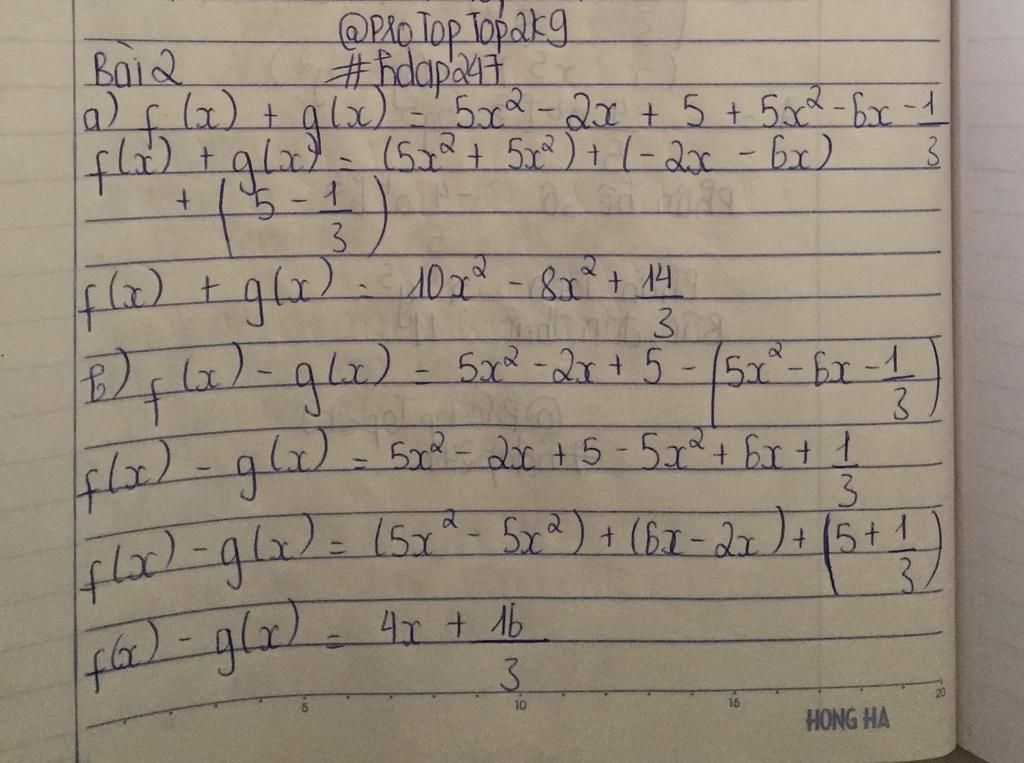 @proTopTop2k9
Bài 2 #hdap247
a) f(x) + g(x) = 5x² - 2x + 5 + 5x² - 6x - 1/3
f(x) + g(x) = (5x² + 5x²) + (-2x - 6x)
+ (5 - 1/3)
f(x) + g(x) = 10x² - 8x² + 14/3
b) f(x) - g(x) = 5x² - 2x + 5 - (5x² - 6x - 1/3)
f(x) - g(x) = 5x² - 2x + 5 - 5x² + 6x + 1/3
f(x) - g(x) = (5x² - 5x²) + (6x - 2x) + (5 + 1/3)
f(x) - g(x) = 4x + 16/3
5 10 15 20
HONG HA